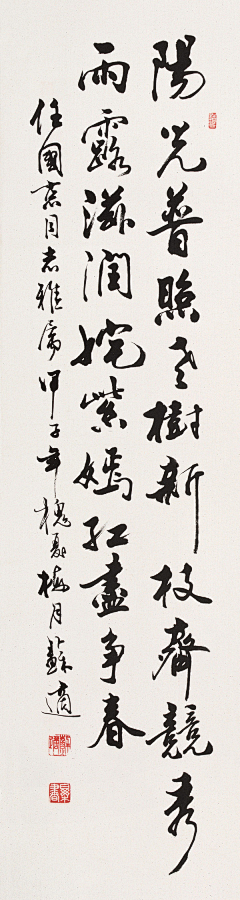 陽光普照老樹新枝齊競秀
雨露滋潤姹紫嫣紅盡爭春
任國素同志雅屬甲子年槐夏梅月蘇適